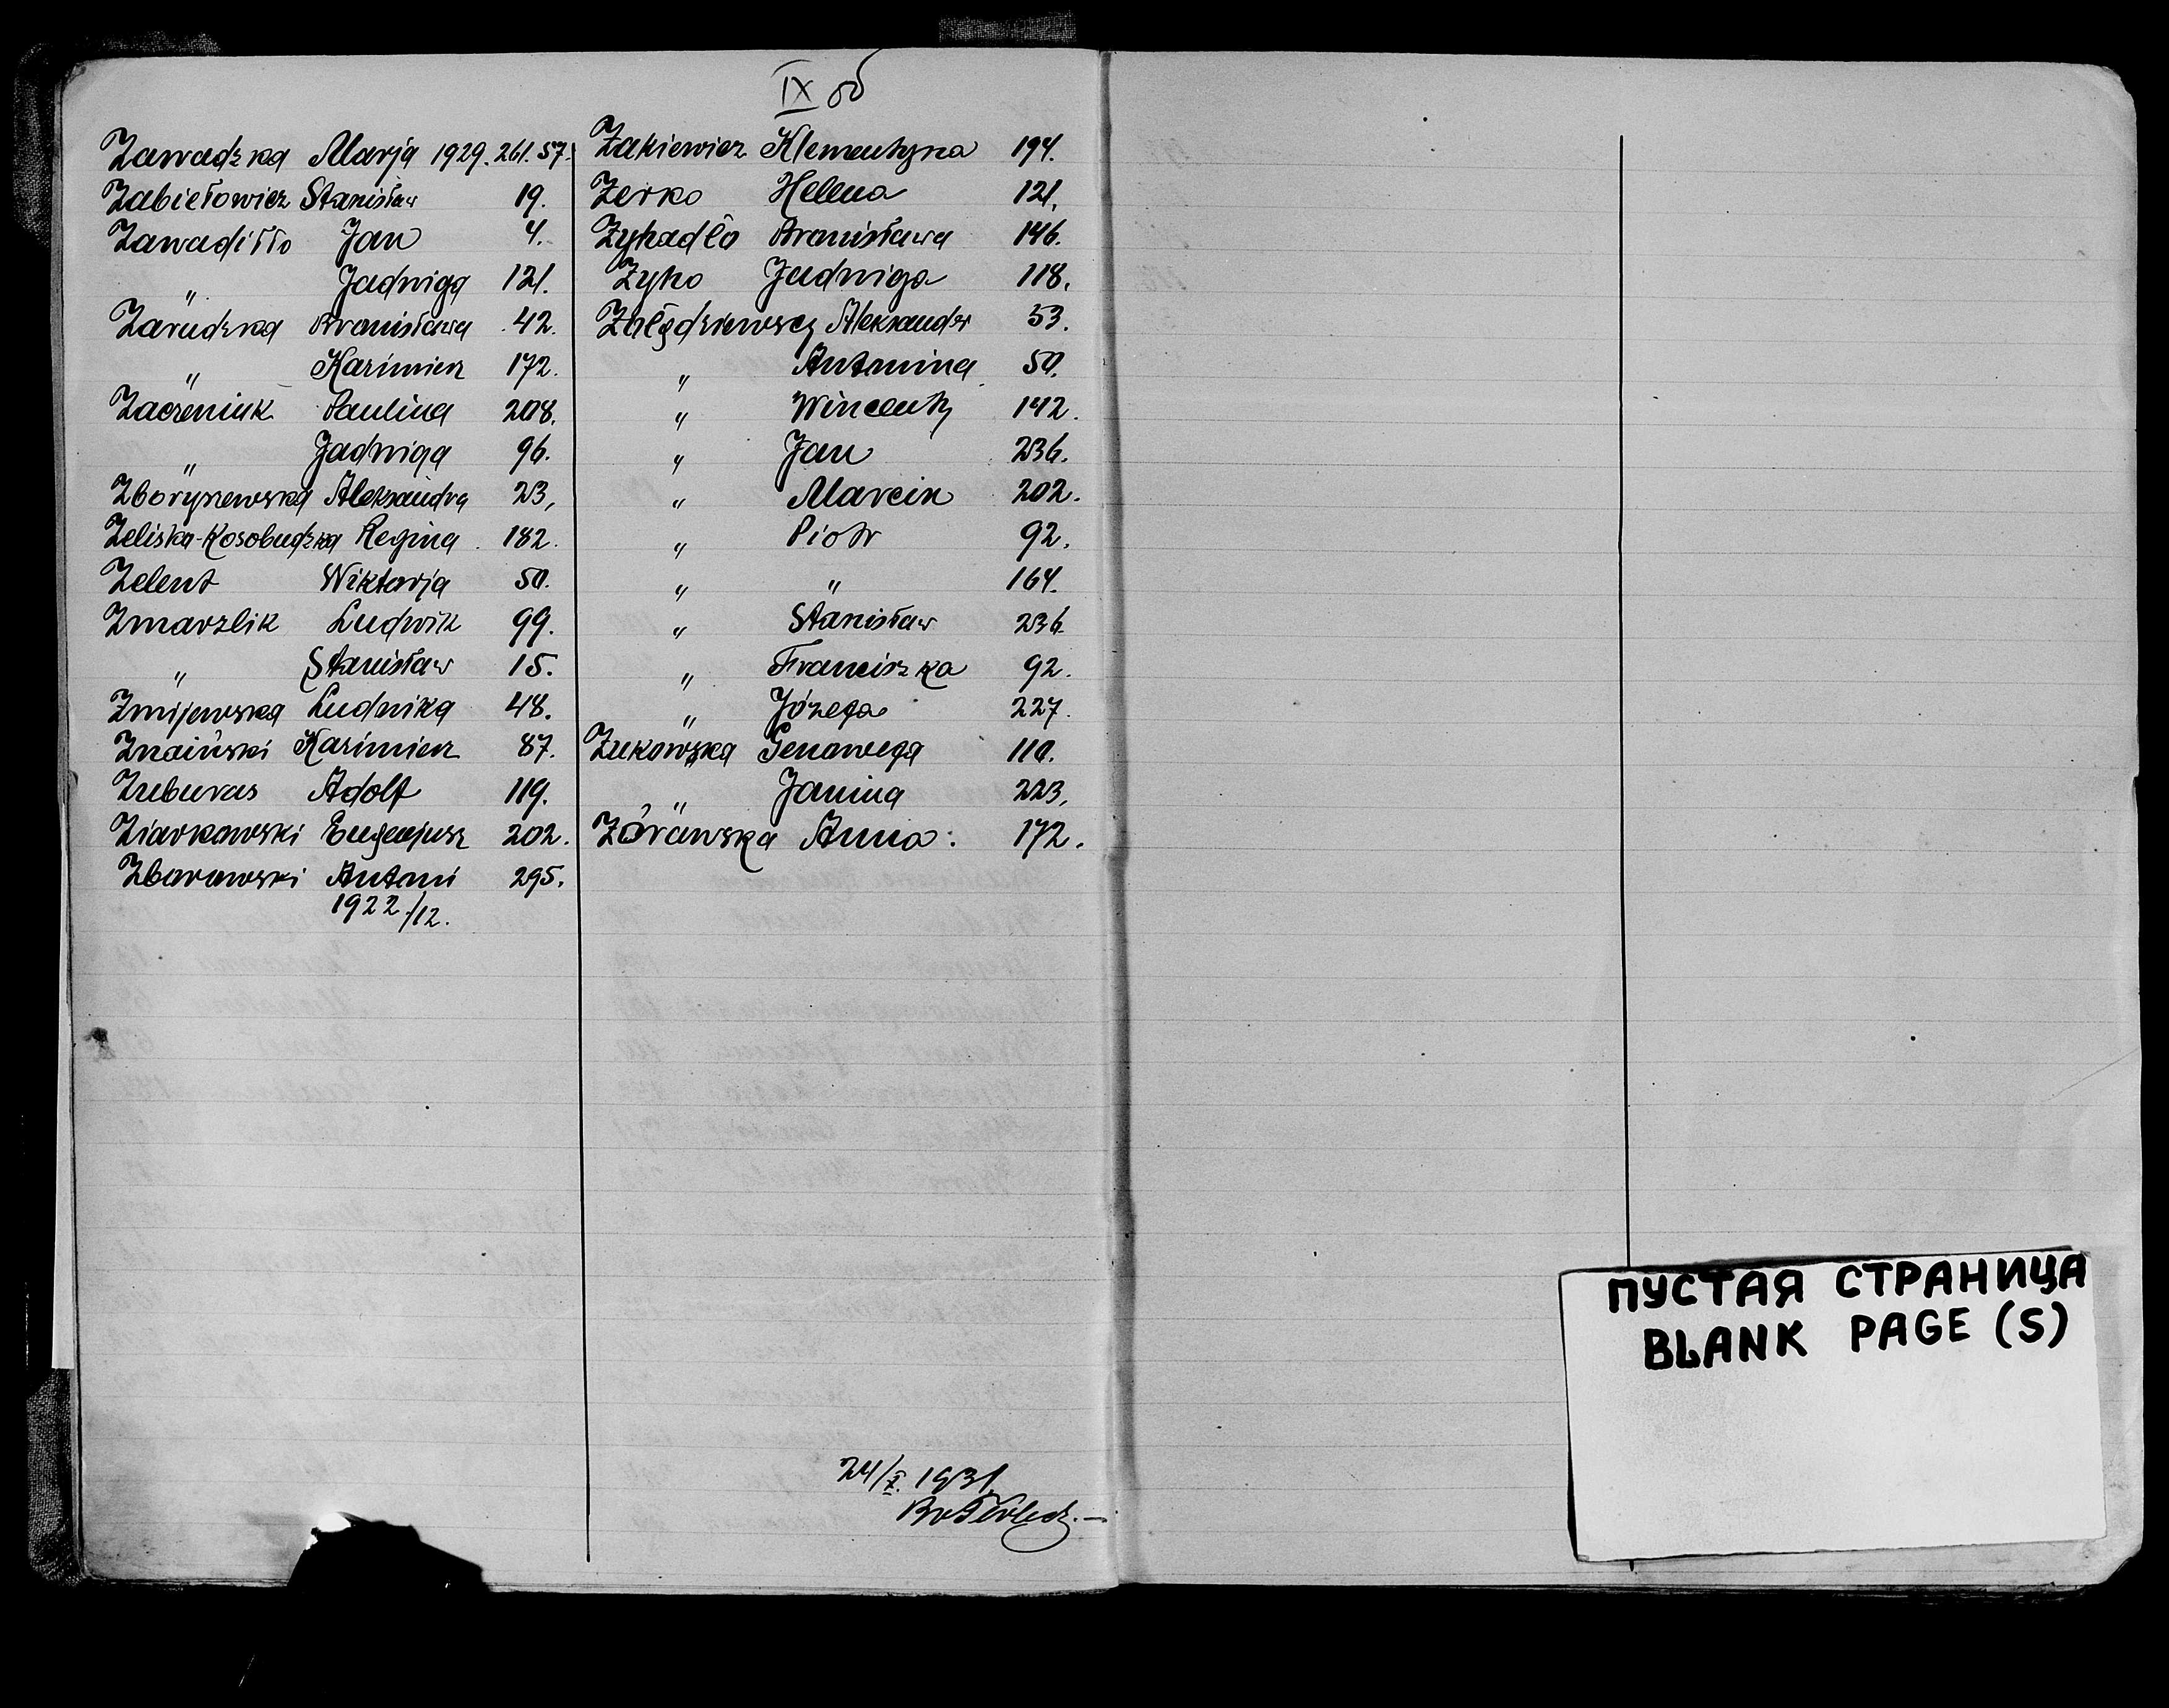 IX об
Zawadzka Marja 1929. 261. 57.
Zabiełowicz Stanisław 19.
Zawadiłło Jan 4.
" Jadwiga 121.
Zarudzka Bronisława 42.
" Kazimierz 172.
Zacreniuk Paulina 208.
" Jadwiga 96.
Zboryszewska Aleksandra 23,
Zeliska-Kosobudzka Regina 182.
Zelent Wiktorja 50.
Zmarzlik Ludwik 99.
" Stanisław 15.
Zmijewska Ludwika 48.
Znaiński Kazimierz 87.
Zuburas Adolf 119.
Ziarkowski Eugenjusz 202.
Zborowski Antoni 295.
1922./12.
Żakiewicz Klementyna 194.
Żerko Helena 121.
Żyhadło Bronisława 146.
Żyho Jadwiga 118.
Żołędziewscy Aleksander 53.
" Antonina 50.
" Wincenty 142.
" Jan 236.
" Marcin 202.
" Piotr 92.
" " 164.
" Stanisław 236.
" Franciszka 92.
" Józefa 227.
Żukowska Genowefa 110.
" Janina 223,
Żórawska Anna: 172.
24/X. 1931.
ПУСТАЯ СТРАНИЦА
BLANK PAGE (S)